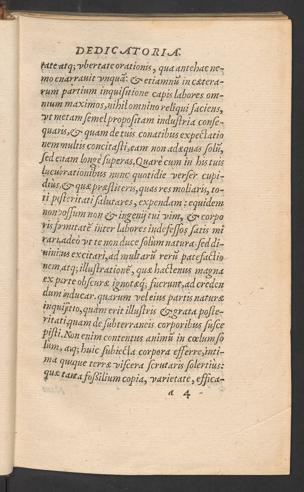 DEDICATORIA.
tate atq; vbertate orationis, qua antehac ne-
mo enarrauit vnquā: & etiamnū in cætera-
rum partium inquisitione capis labores om-
nium maximos, nihil omnino reliqui faciens,
vt metam semel propositam industria conse-
quaris, & quam de tuis conatibus expectatio
nem multis concitasti, eam non adæquas solū,
sed etiam longè superas. Quare cum in his tuis
lucubrationibus nunc quotidie verser cupi-
dius, & quæ præstiteris, quas res moliaris, to-
ti posteritati salutares, expendam: equidem
non possum non & ingenij tui vim, & corpo
ris firmitatē inter labores indefessos satis mi
rari, adeò vt te non duce solum natura, sed di-
uinitus excitari, ad multarū rerū patefactio
nem atq; illustrationē, quæ hactenus magna
ex parte obscuræ ignotæq; fuerunt, ad creden
dum inducar. quarum vel eius partis naturæ
inquisitio, quàm erit illustris & grata poste-
ritati, quam de subterraneis corporibus susce
pisti. Non enim contentus animū in cœlum so
lum, atq; huic subiecta corpora efferre, inti-
ma quoque terræ viscera scrutaris solertius:
quæ tanta fossilium copia, varietate, effica-
a 4